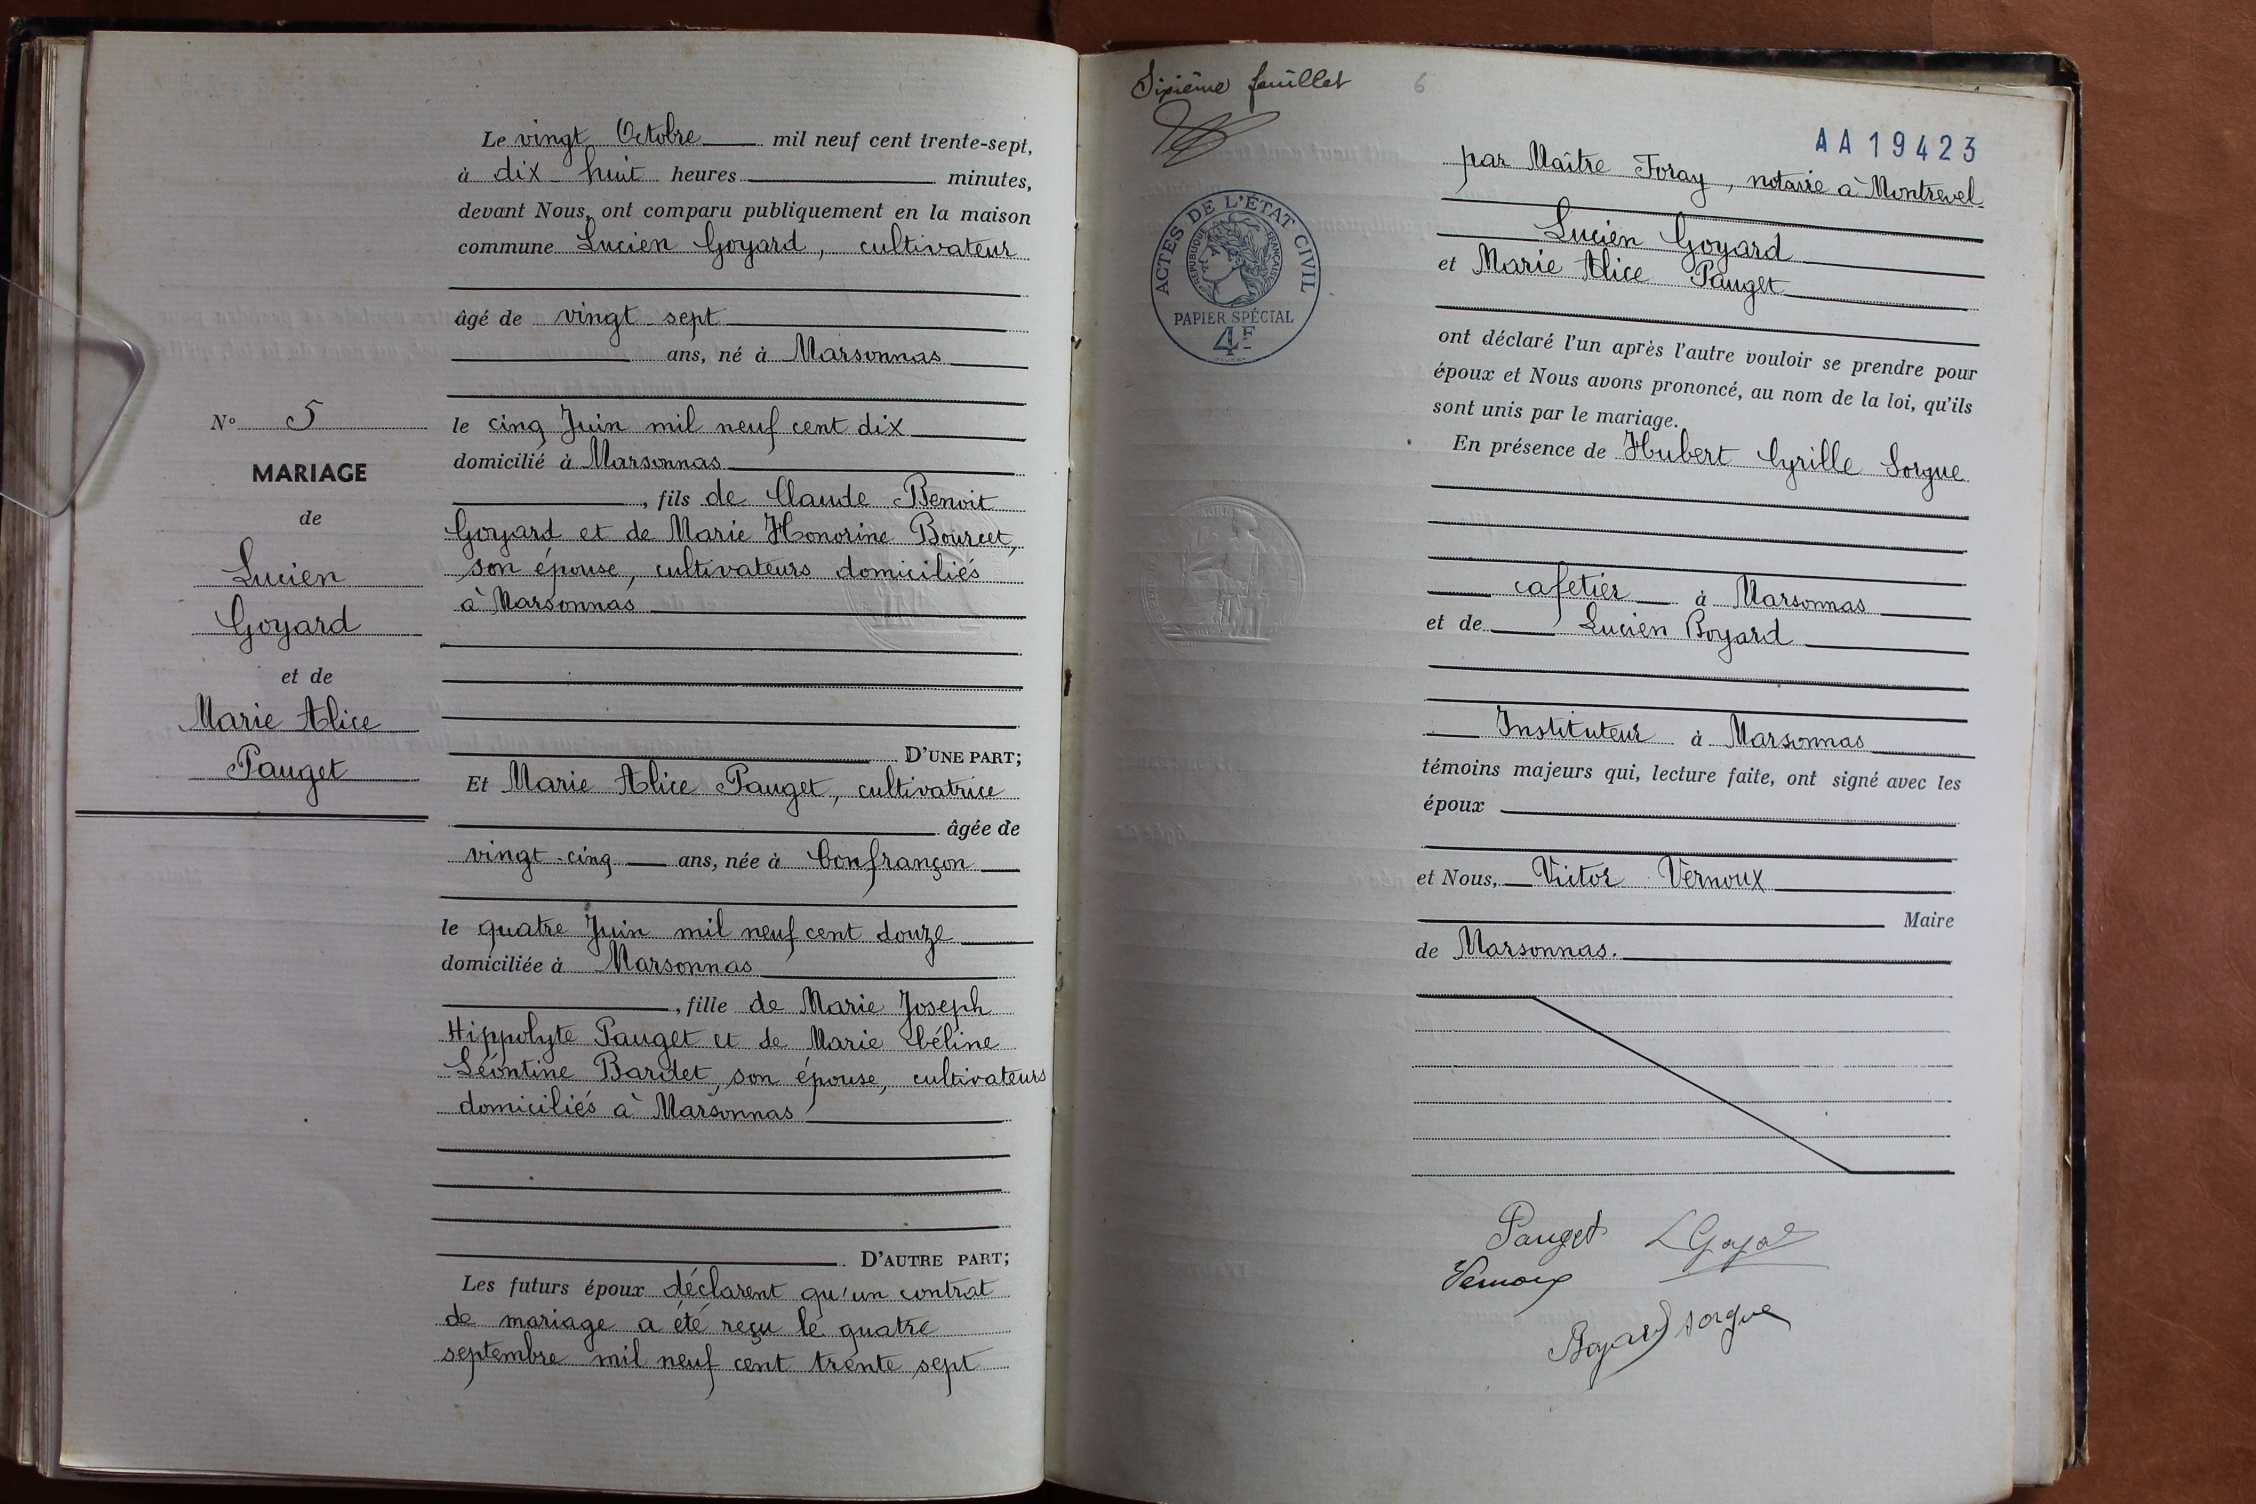 Le vingt Octobre mil neuf cent trente-sept,
à dix huit heures minutes,
devant Nous, ont comparu publiquement en la maison
commune Lucien Goyard, cultivateur
âgé de vingt sept
ans, né à Marsonnas
le cinq Juin mil neuf cent dix
domicilié à Marsonnas
, fils de Claude Benoit
Goyard et de Marie Honorine Bourcet,
son épouse, cultivateurs domiciliés
à Marsonnas
D'UNE PART;
Et Marie Alice Pauget, cultivatrice
âgée de
vingt-cinq ans, née à Confrançon
le quatre Juin mil neuf cent douze
domiciliée à Marsonnas
, fille de Marie Joseph
Hippolyte Pauget et de Marie Céline
Léontine Bardet, son épouse, cultivateurs
domiciliés à Marsonnas
D'AUTRE PART;
Les futurs époux déclarent qu'un contrat
de mariage a été reçu le quatre
septembre mil neuf cent trente sept
N° 5
MARIAGE
de
Lucien
Goyard
et de
Marie Alice
Pauget
Sixième feuillet
6
AA19423
ACTES DE L'ÉTAT CIVIL
RÉPUBLIQUE FRANÇAISE
PAPIER SPÉCIAL
4F
par Maître Foray, notaire à Montrevel
Lucien Goyard
et Marie Alice Pauget
ont déclaré l'un après l'autre vouloir se prendre pour
époux et Nous avons prononcé, au nom de la loi, qu'ils
sont unis par le mariage.
En présence de Hubert Cyrille Sorgue
cafetier à Marsonnas
et de Lucien Boyard
Instituteur à Marsonnas
témoins majeurs qui, lecture faite, ont signé avec les
époux
et Nous, Victor Vernoux
Maire
de Marsonnas.
Pauget L Goyard
Vernoux
Boyard Sorgue